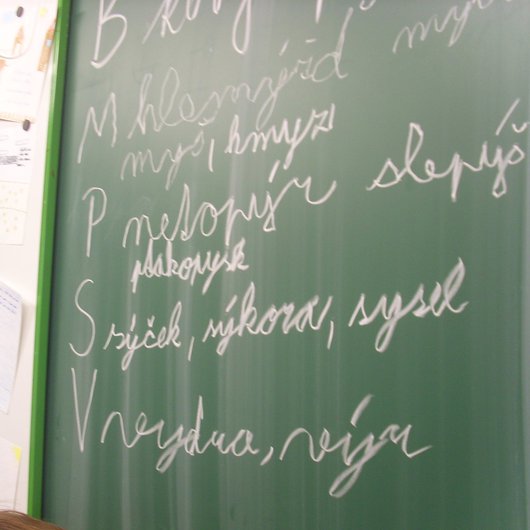 B
M hlemýžď
myš, hmyz
P netopýr slepýš
ptakopysk
S sýček, sýkora, sysel
V vydra, výr